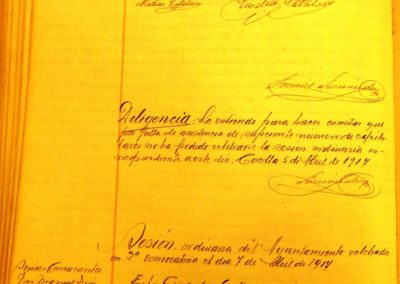 Matias Catalan
Emilio Catalan
Diligencia: La extiendo para hacer constar que
por falta de asistencia de suficiente numero de capitu
lares no ha podido celebrarse la sesion ordinaria co
rrespondiente a este dia. Corella 5 de Abril de 1917
Sesión ordinaria del Ayuntamiento celebrada
en 2ª convocatoria el dia 7 de Abril de 1917
Señores Concurrentes